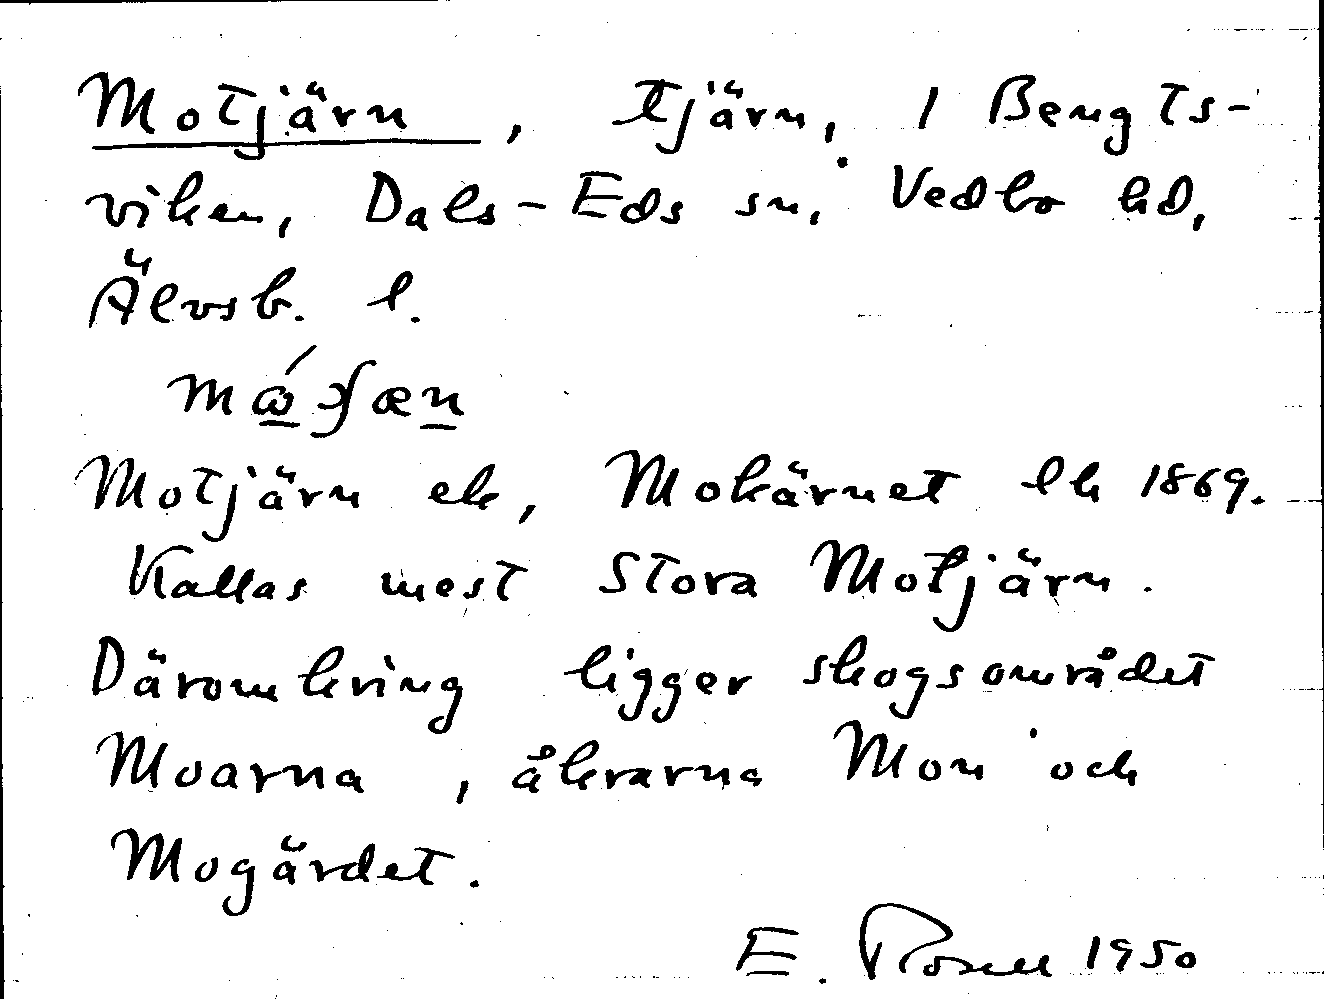 Motjärn, tjärn, 1 Bengts-
viken, Dals-Eds sn, Vedbo hd,
Älvsb. l.
Motjärn ek, Mokärnet lk 1869.
Kallas mest Stora Motjärn.
Däromkring ligger skogsområdet
Moarna, åkrarna Mon och
Mogärdet.
E. Rosell 1950